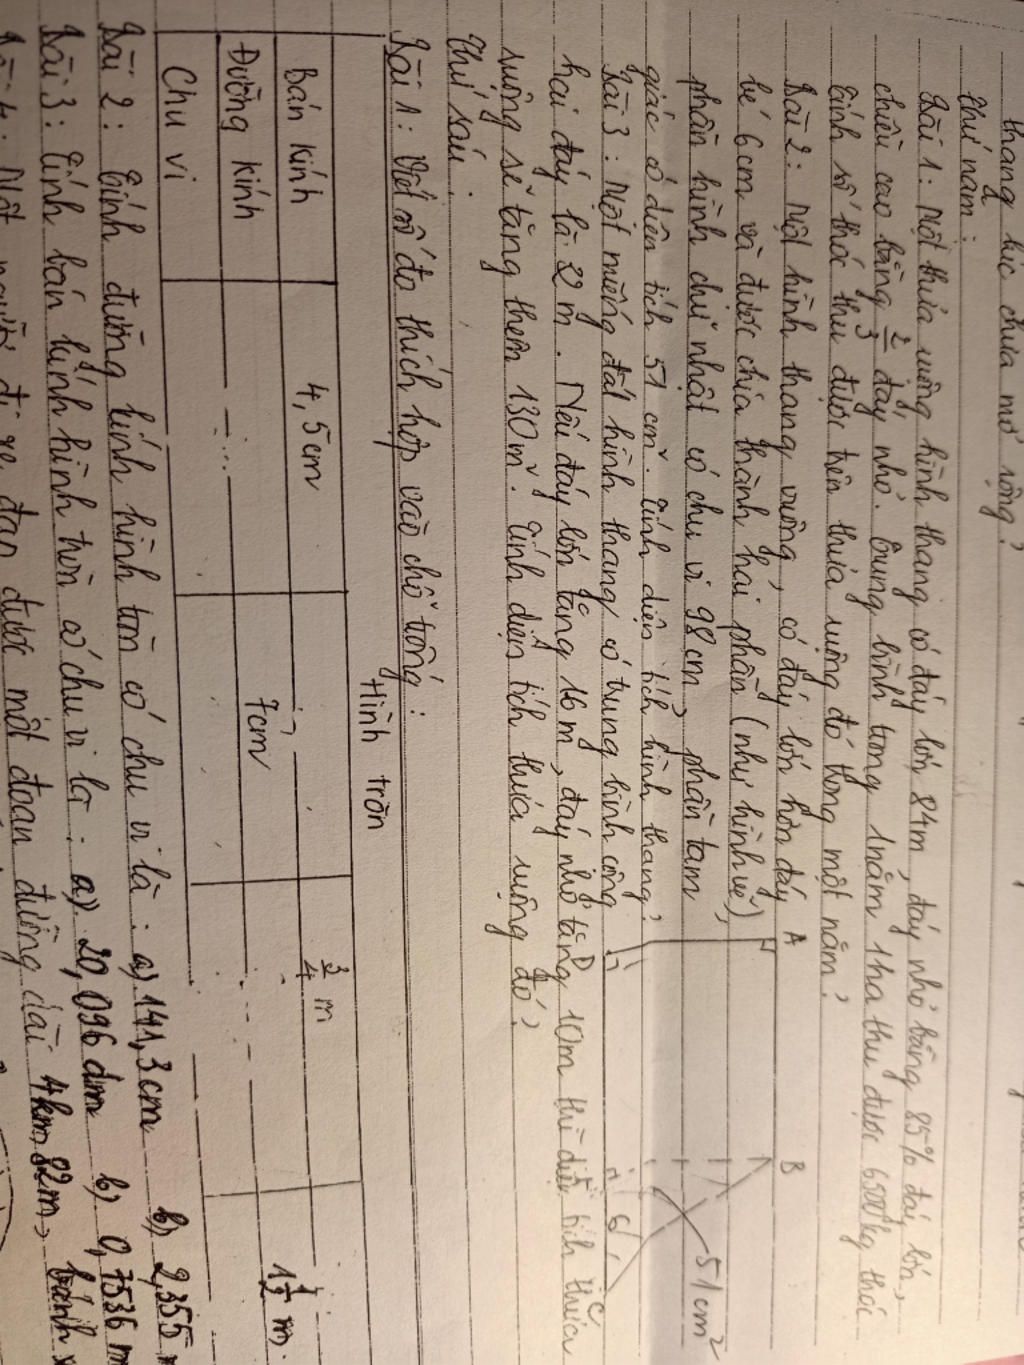 thang lúc chưa mở rộng?
Thứ năm:
Bài 1: Một thửa ruộng hình thang có đáy lớn 84m, đáy nhỏ bằng 85% đáy lớn,
chiều cao bằng 2/3 đáy nhỏ. Trung bình trong 1 năm 1ha thu được 6500kg thóc
Tính số thóc thu được trên thửa ruộng đó trong một năm?
Bài 2: Một hình thang vuông, có đáy lớn hơn đáy
bé 6cm và được chia thành hai phần (như hình vẽ),
phần hình chữ nhật có chu vi 98cm, phần tam
giác có diện tích 51 cm². Tính diện tích hình thang?
A B
51cm²
D 6 C
Bài 3: Một miếng đất hình thang có trung bình cộng
hai đáy là 32 m. Nếu đáy lớn tăng 16m, đáy nhỏ tăng 10m thì diện tích thửa
ruộng sẽ tăng thêm 130m². Tính diện tích thửa ruộng đó?
Thứ sáu:
Bài 1: Viết số đo thích hợp vào chỗ trống:
Hình tròn
Bán kính 4,5cm 3/4 m
Đường kính 7cm 1 1/2 m
Chu vi
Bài 2: Tính đường kính hình tròn có chu vi là: a) 141,3cm b) 2,355
Bài 3: Tính bán kính hình tròn có chu vi là: a) 20,096 dm b) 0,7536 m
Bài 4: Một người đi xe đạp được một đoạn đường dài 4km 82m, bánh